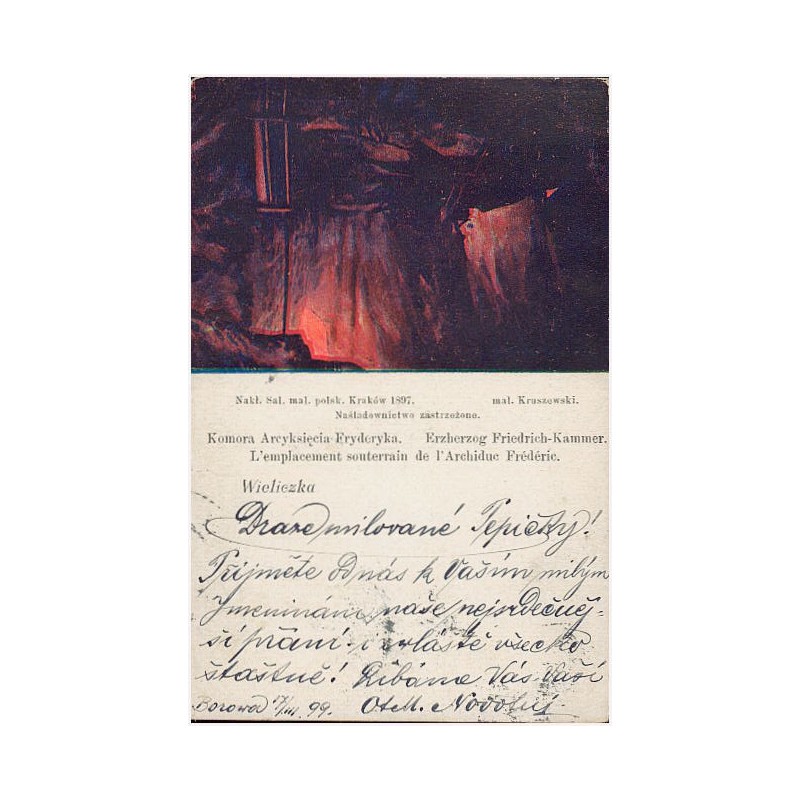 Nakł. Sal. mal. polsk. Kraków 1897. mal. Kruszewski.
Naśladownictwo zastrzeżone.
Komora Arcyksięcia Fryderyka. Erzherzog Friedrich-Kammer.
L'emplacement souterrain de l'Archiduc Frédéric.
Wieliczka
Draze milované Pepičky!
Přijměte od nás k Vašim milým
jmeninám, naše nejsrdečněj-
ší přání i zvláště všecko
šťastné! Líbáme Vás Vaši
99. Novotný.